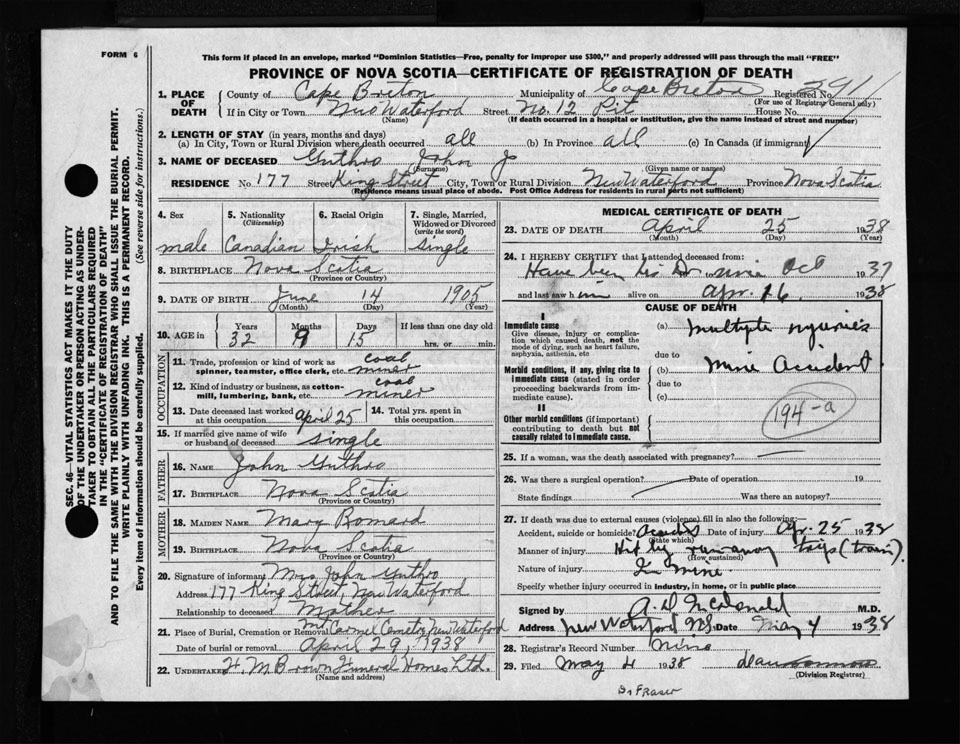 FORM 6
This form if placed in an envelope, marked "Dominion Statistics—Free, penalty for improper use $300," and properly addressed will pass through the mail "FREE"
PROVINCE OF NOVA SCOTIA—CERTIFICATE OF REGISTRATION OF DEATH
SEC. 46—VITAL STATISTICS ACT MAKES IT THE DUTY
OF THE UNDERTAKER OR PERSON ACTING AS UNDER-
TAKER TO OBTAIN ALL THE PARTICULARS REQUIRED
IN THE "CERTIFICATE OF REGISTRATION OF DEATH"
AND TO FILE THE SAME WITH THE DIVISION REGISTRAR WHO SHALL ISSUE THE BURIAL PERMIT.
WRITE PLAINLY WITH UNFADING INK. THIS IS A PERMANENT RECORD.
Every item of information should be carefully supplied. (See reverse side for instructions.)
1. PLACE OF DEATH
County of Cape Breton Municipality of Cape Breton Registered No. 2911
(For use of Registrar General only)
If in City or Town New Waterford Street No. 12 Pit House No.
(Name) (If death occurred in a hospital or institution, give the name instead of street and number)
2. LENGTH OF STAY (in years, months and days)
(a) In City, Town or Rural Division where death occurred all (b) In Province all (c) In Canada (if immigrant)
3. NAME OF DECEASED Guthro John J
(Surname) (Given name or names)
RESIDENCE No. 177 Street King Street City, Town or Rural Division New Waterford Province Nova Scotia
(Residence means usual place of abode. Post Office Address for residents in rural parts not sufficient)
4. Sex
male
5. Nationality
(Citizenship)
Canadian
6. Racial Origin
Irish
7. Single, Married,
Widowed or Divorced
(write the word)
single
8. BIRTHPLACE Nova Scotia
(Province or Country)
9. DATE OF BIRTH June 14 1905
(Month) (Day) (Year)
10. AGE in
Years Months Days If less than one day old
32 9 15 hrs. or min.
OCCUPATION
11. Trade, profession or kind of work as coal
spinner, teamster, office clerk, etc. miner
12. Kind of industry or business, as cotton- coal
mill, lumbering, bank, etc. miner
13. Date deceased last worked
at this occupation April 25
14. Total yrs. spent in
this occupation
15. If married give name of wife
or husband of deceased single
FATHER
16. NAME John Guthro
17. BIRTHPLACE Nova Scotia
(Province or Country)
MOTHER
18. MAIDEN NAME Mary Romard
19. BIRTHPLACE Nova Scotia
(Province or Country)
20. Signature of informant Mrs John Guthro
Address 177 King Street, New Waterford
Relationship to deceased Mother
21. Place of Burial, Cremation or Removal Mt Carmel Cemetry New Waterford
Date of burial or removal April 29, 1938
22. UNDERTAKER H. M Brown Funeral Homes Ltd.
(Name and address)
MEDICAL CERTIFICATE OF DEATH
23. DATE OF DEATH April 25 1938
(Month) (Day) (Year)
24. I HEREBY CERTIFY that I attended deceased from:
Have been his Dr Oct 1937
and last saw him alive on Apr. 16 1938
CAUSE OF DEATH
I
Immediate cause
Give disease, injury or complica-
tion which caused death, not the
mode of dying, such as heart failure,
asphyxia, asthenia, etc
(a) Multiple injuries
due to
Morbid conditions, if any, giving rise to
immediate cause (stated in order
proceeding backwards from im-
mediate cause).
(b) Mine Accident.
due to
(c)
194-a
II
Other morbid conditions (if important)
contributing to death but not
causally related to immediate cause.
25. If a woman, was the death associated with pregnancy?
26. Was there a surgical operation? Date of operation 19
State findings Was there an autopsy?
27. If death was due to external causes (violence) fill in also the following:
Accident, suicide or homicide? Date of injury Apr. 25 1938
(State which)
Manner of injury Hit by runaway trips (train).
(How sustained)
Nature of injury In mine.
Specify whether injury occurred in industry, in home, or in public place
Signed by A. D McDonald M.D.
Address New Waterford N.S. Date May 4 1938
28. Registrar's Record Number
29. Filed May 4 1938
(Division Registrar)
Dr Fraser